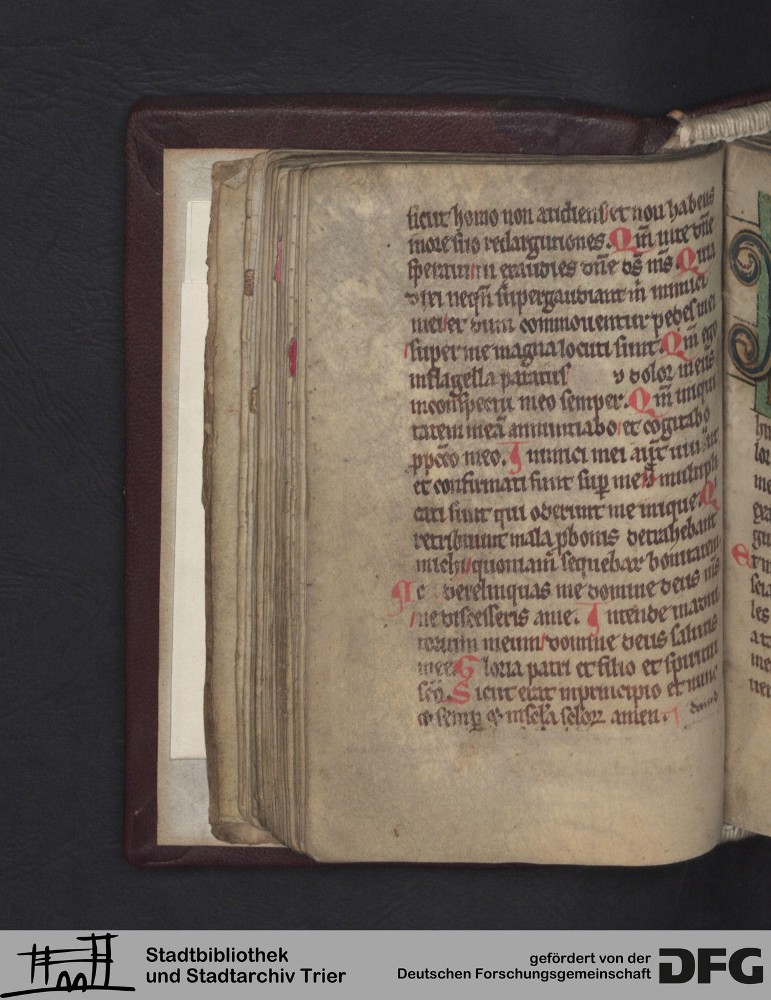 sicut homo non audiens et non habens
in ore suo redargutiones. Qm̄ in te dn̄e
speraui tu exaudies dn̄e ds̄ ms̄ Quia
dixi neqn̄ supergaudiant m̄ inimici
mei et dum commouentur pedes mei
super me magna locuti sunt. Qm̄ ego
in flagella paratus dolor meus
in conspectu meo semper. Qm̄ iniqui
tatem meā annuntiabo et cogitabo
peccō meo. Inimici mei aūt uiuūt
et confirmati sunt sup me multipli
cati sunt qui oderunt me inique. Q
retribuunt mala p bonis detrahebant
michi quoniam sequebar bonitatem
Ne derelinquas me domine deus ms̄
ne discesseris a me. Intende in adiu
torium meum domine deus salutis
mee. Gloria patri et filio et spiritui
scō. Sicut erat in principio et nunc
et semp et in scl'a sclorꝝ amen.
lor
me
les
me
Stadtbibliothek
und Stadtarchiv Trier
gefördert von der
Deutschen Forschungsgemeinschaft
DFG